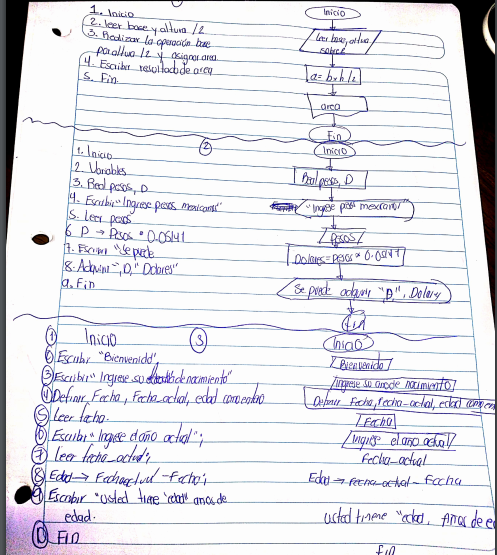 1. Inicio
2. leer base y altura /2
3. Realizar la operación base
por altura /2 y asignar area
4. Escribir resultado de area
5. Fin
Inicio
Leer base, altura
a = b x h / 2
area
Fin
②
1. Inicio
2. Variables
3. Real pesos, D
4. Escribir "Ingrese pesos mexicanos"
5. Leer pesos
6 D → Pesos * 0.05141
7. Escribir "Se puede
8. Adquirir", D, "Dolares"
9. Fin
Inicio
Real pesos, D
"Ingrese pesos mexicanos"
Pesos
Dolares = pesos * 0.05141
Se puede adquirir "D", Dolares
Fin
③
① Inicio
② Escribir "Bienvenido",
③ Escribir "Ingrese su de nacimiento"
④ Definir, Fecha, Fecha_actual, edad como entero
⑤ Leer fecha.
⑥ Escribir "Ingrese el año actual";
⑦ leer fecha_actual;
⑧ Edad → Fecha actual - Fecha;
⑨ Escribir "usted tiene 'edad" anos de
edad.
⑩ Fin
Inicio
Bienvenido
Ingrese su ano de nacimiento
Definir Fecha, fecha_actual, edad como en
Fecha
Ingrese el ano actual
Fecha_actual
Edad → fecha_actual - Fecha
usted tinene "edad, Anos de e
fin